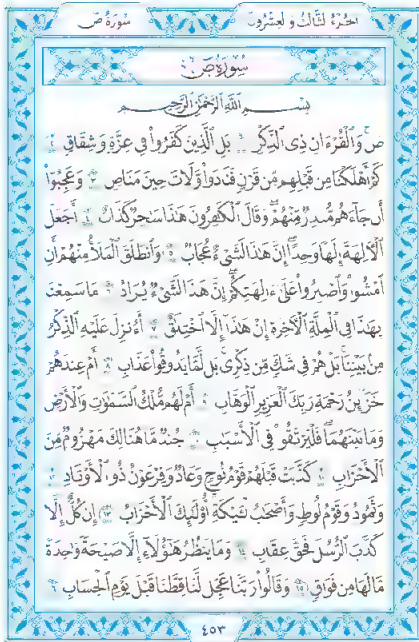 الجزء الثالث والعشرون
سورة ص
سورة ص
بسم الله الرحمن الرحيم
ص والقرءان ذي الذكر ١ بل الذين كفروا في عزة وشقاق ٢
كم أهلكنا من قبلهم من قرن فنادوا ولات حين مناص ٣ وعجبوا
أن جاءهم منذر منهم وقال الكفرون هذا سحر كذاب ٤ أجعل
الألهة إلها وحدا إن هذا لشيء عجاب ٥ وانطلق الملأ منهم أن
امشوا واصبروا على ءالهتكم إن هذا لشيء يراد ٦ ما سمعنا
بهذا في الملة الأخرة إن هذا إلا اختلق ٧ أءنزل عليه الذكر
من بيننا بل هم في شك من ذكري بل لما يذوقوا عذاب ٨ أم عندهم
خزائن رحمة ربك العزيز الوهاب ٩ أم لهم ملك السموت والأرض
وما بينهما فليرتقوا في الأسبب ١٠ جند ما هنالك مهزوم من
الأحزاب ١١ كذبت قبلهم قوم نوح وعاد وفرعون ذو الأوتاد ١٢
وثمود وقوم لوط وأصحب لئيكة أولئك الأحزاب ١٣ إن كل إلا
كذب الرسل فحق عقاب ١٤ وما ينظر هؤلاء إلا صيحة وحدة
ما لها من فواق ١٥ وقالوا ربنا عجل لنا قطنا قبل يوم الحساب ١٦
٤٥٣